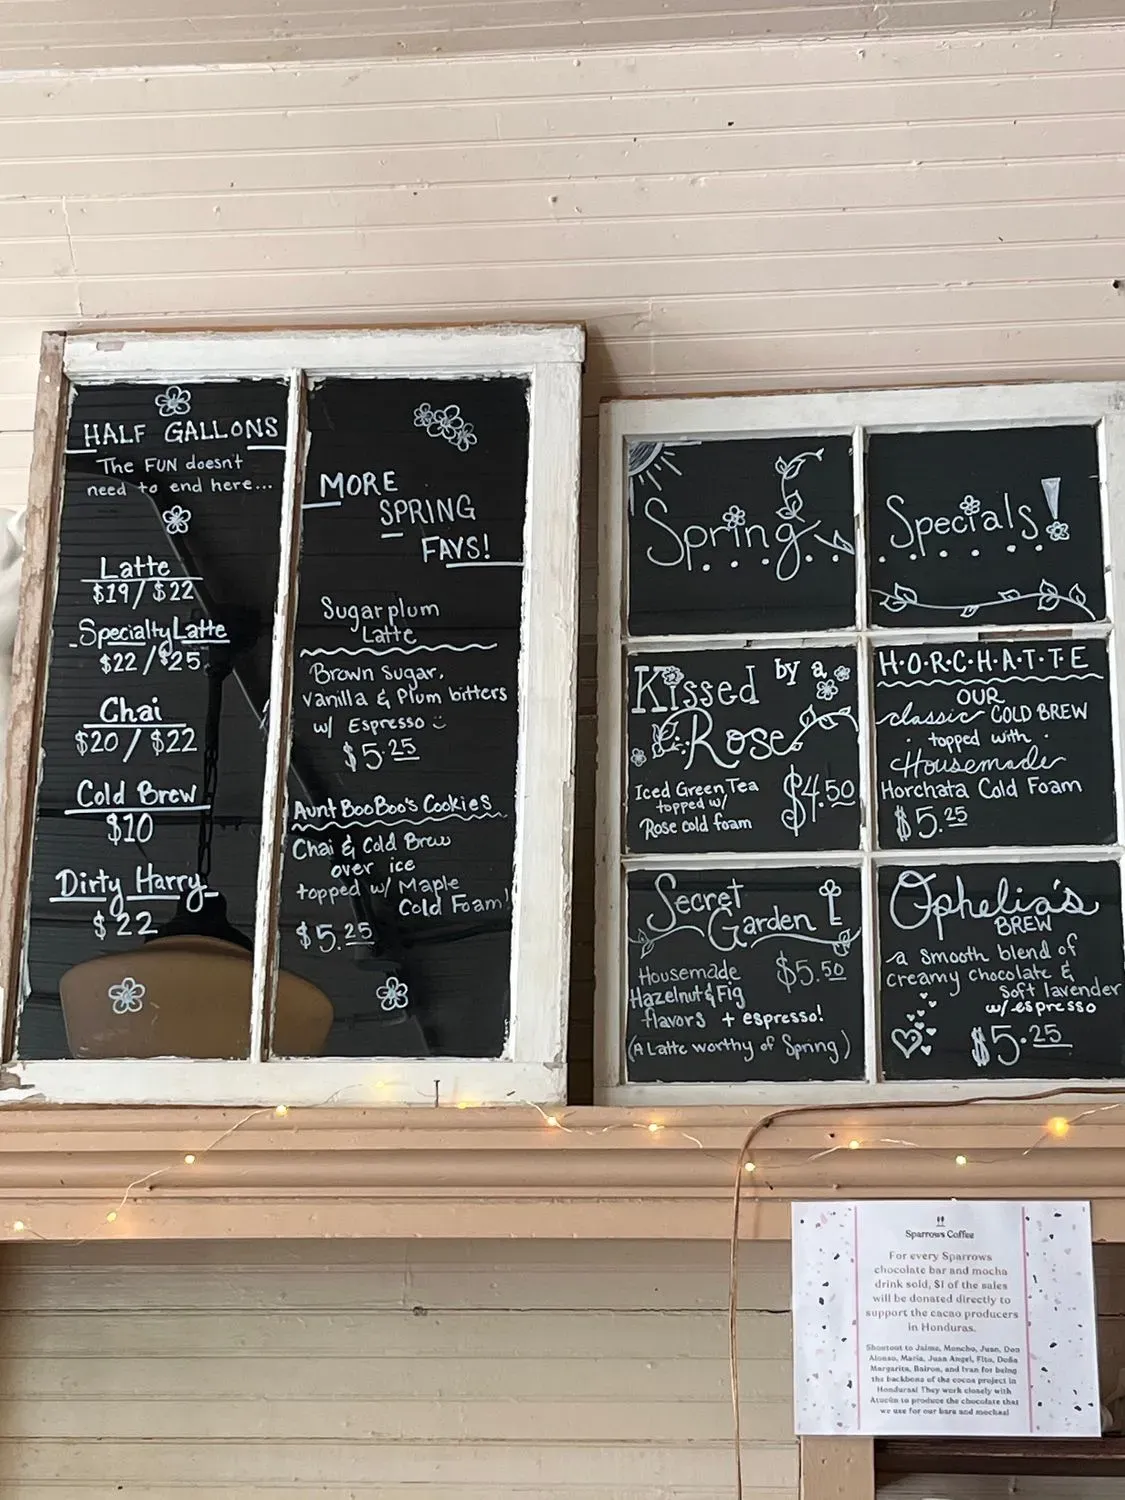 HALF GALLONS
The FUN doesn't
need to end here...
Latte
$19/$22
Specialty Latte
$22/$25
Chai
$20/$22
Cold Brew
$10
Dirty Harry
$22
MORE
SPRING
FAVS!
Sugarplum
Latte
Brown Sugar,
Vanilla & Plum bitters
w/ Espresso
$5.25
Aunt BooBoo's Cookies
Chai & Cold Brew
over ice
topped w/ Maple
Cold Foam!
$5.25
Spring
Specials!
Kissed by a
Rose
Iced Green Tea
topped w/
Rose cold foam
$4.50
H·O·R·C·H·A·T·T·E
OUR
classic COLD BREW
topped with
Housemade
Horchata Cold Foam
$5.25
Secret
Garden
Housemade
Hazelnut & Fig
flavors + espresso!
$5.50
(A Latte worthy of Spring)
Ophelia's
BREW
a smooth blend of
creamy chocolate &
soft lavender
w/espresso
$5.25
Sparrows Coffee
For every Sparrows
chocolate bar and mocha
drink sold, $1 of the sales
will be donated directly to
support the cacao producers
in Honduras.
Shoutout to Jaime, Moncho, Juan, Don
Alonso, Maria, Juan Angel, Fito, Doña
Margarita, Bairon, and Ivan for being
the backbone of the cocoa project in
Honduras! They work closely with
to produce the chocolate that
we use for our bars and mochas!